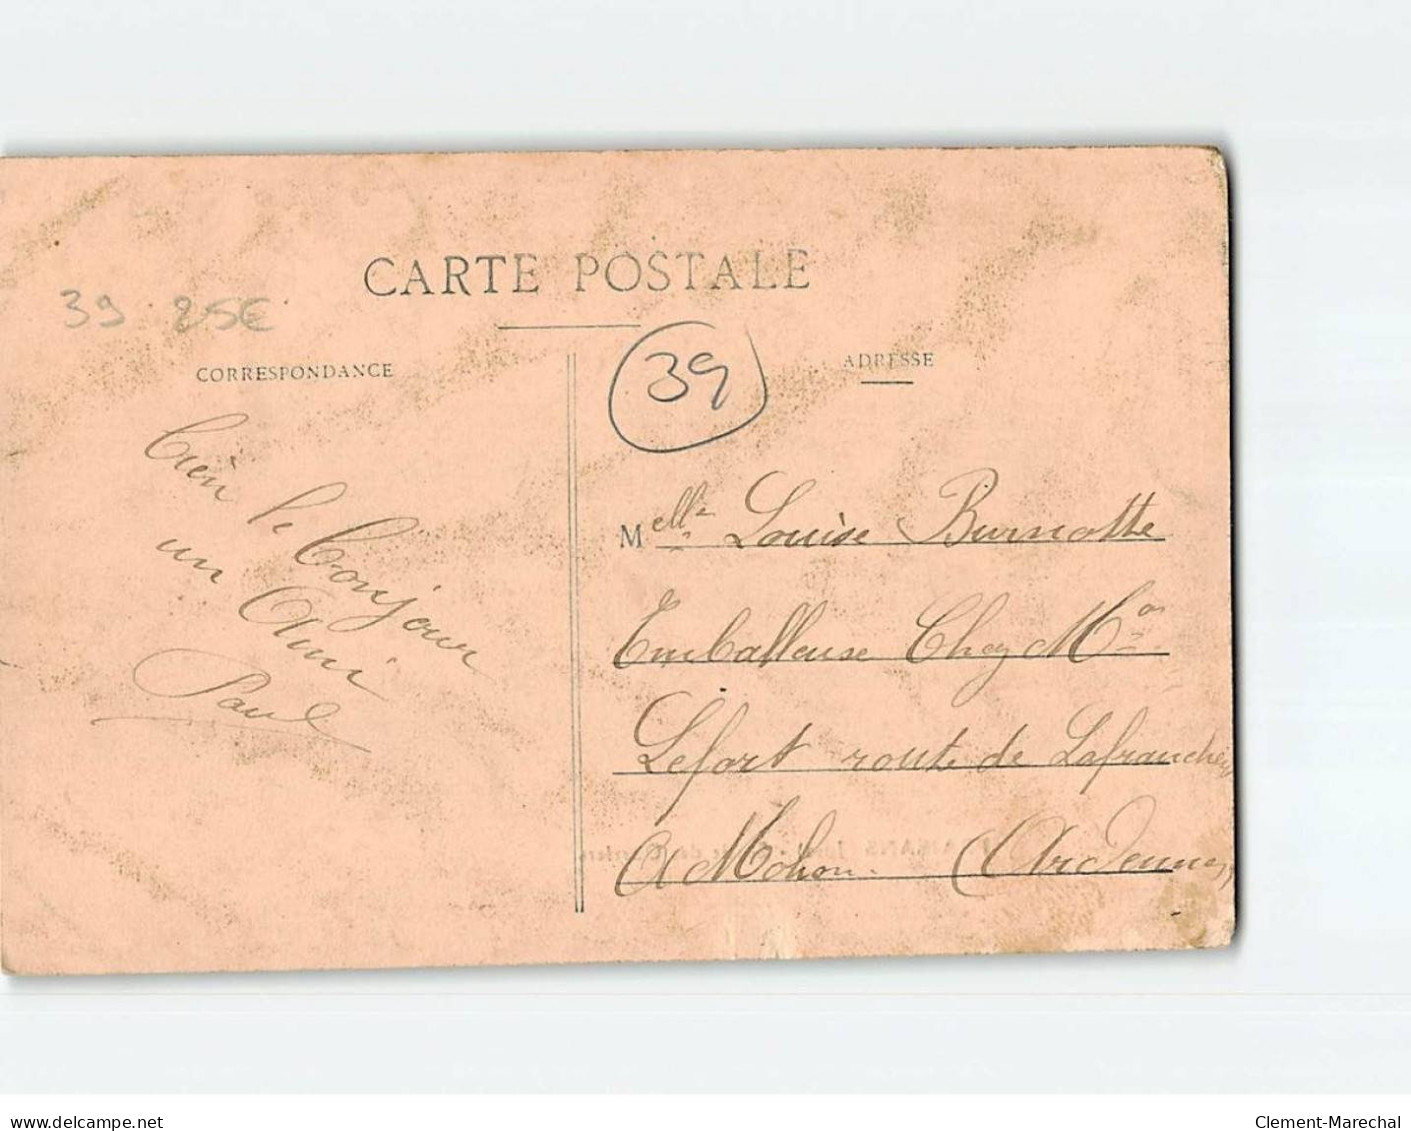 CARTE POSTALE
39 25€
CORRESPONDANCE
39
ADRESSE
bien le bonjour
un Ami
Paul
Melle Louise Burnotte
Emballeuse Chez M
Lefort route de Lafrancheville
A Mohon. (Ardennes)
www.delcampe.net
Clement-Marechal